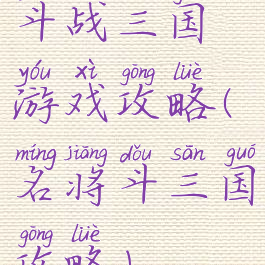 斗战三国
yóu xì gōng lüè
游戏攻略(
míng jiāng dǒu sān guó
名将斗三国
gōng lüè
攻略)